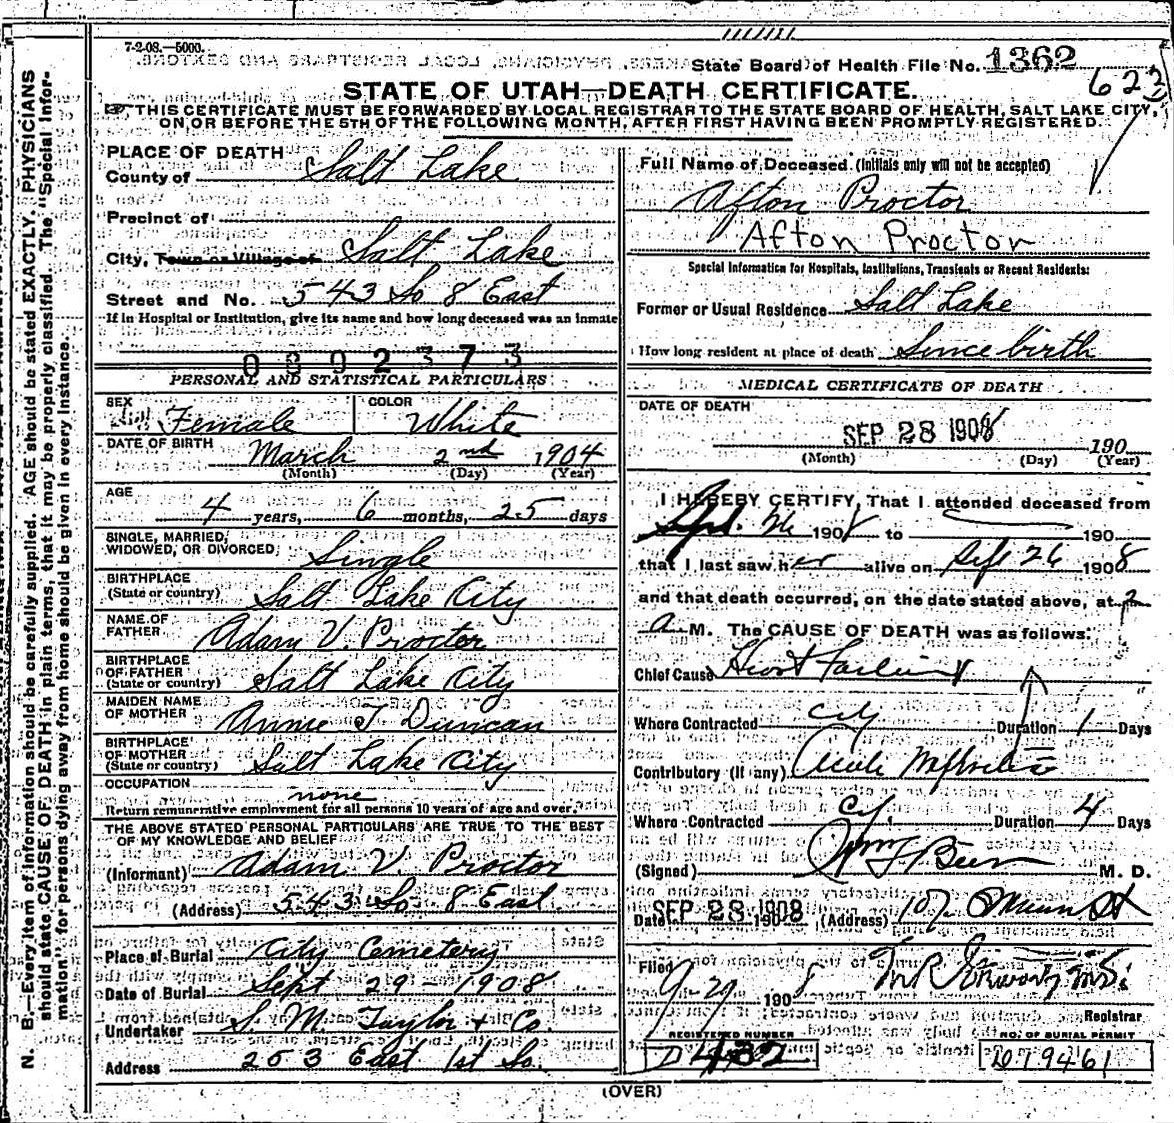 7-2-08.—5000.
State Board of Health File No. 1362
622
STATE OF UTAH—DEATH CERTIFICATE.
THIS CERTIFICATE MUST BE FORWARDED BY LOCAL REGISTRAR TO THE STATE BOARD OF HEALTH, SALT LAKE CITY,
ON OR BEFORE THE 5TH OF THE FOLLOWING MONTH, AFTER FIRST HAVING BEEN PROMPTLY REGISTERED.
N. B.—Every item of information should be carefully supplied. AGE should be stated EXACTLY. PHYSICIANS
should state CAUSE OF DEATH in plain terms, that it may be properly classified. The "Special Infor-
mation" for persons dying away from home should be given in every instance.
PLACE OF DEATH
County of Salt Lake
Precinct of
City, Town or Village of Salt Lake
Street and No. 543 So 8 East
If in Hospital or Institution, give its name and how long deceased was an inmate
0892373
PERSONAL AND STATISTICAL PARTICULARS
SEX Female COLOR White
DATE OF BIRTH March 2nd 1904
(Month) (Day) (Year)
AGE
4 years, 6 months, 25 days
SINGLE, MARRIED,
WIDOWED, OR DIVORCED Single
BIRTHPLACE
(State or country) Salt Lake City
NAME OF
FATHER Adam V. Proctor
BIRTHPLACE
OF FATHER
(State or country) Salt Lake City
MAIDEN NAME
OF MOTHER Annie T Duncan
BIRTHPLACE
OF MOTHER
(State or country) Salt Lake City
OCCUPATION none
Return remunerative employment for all persons 10 years of age and over.
THE ABOVE STATED PERSONAL PARTICULARS ARE TRUE TO THE BEST
OF MY KNOWLEDGE AND BELIEF
(Informant) Adam V. Proctor
(Address) 543 So 8 East
Place of Burial City Cemetery
Date of Burial Sept 29-1908
Undertaker S. M. Taylor + Co.
Address 253 East 1st So.
Full Name of Deceased (Initials only will not be accepted)
Afton Proctor
Afton Proctor
Special Information for Hospitals, Institutions, Transients or Recent Residents:
Former or Usual Residence Salt Lake
How long resident at place of death Since birth
MEDICAL CERTIFICATE OF DEATH
DATE OF DEATH
SEP 28 1908 190
(Month) (Day) (Year)
I HEREBY CERTIFY, That I attended deceased from
Sept. 26 1908 to 190
that I last saw her alive on Sept 26 1908
and that death occurred, on the date stated above, at 2
a M. The CAUSE OF DEATH was as follows:
Chief Cause Heart Failure
Where Contracted City Duration 1 Days
Contributory (If any) Acute Nephritis
Where Contracted City Duration 4 Days
(Signed) Wm F Beer M. D.
Date SEP 28 1908 190 (Address) 107 Main St
Filed 9-29 1908
Registrar
REGISTERED NUMBER
D 432
NO. OF BURIAL PERMIT
D19461
(OVER)